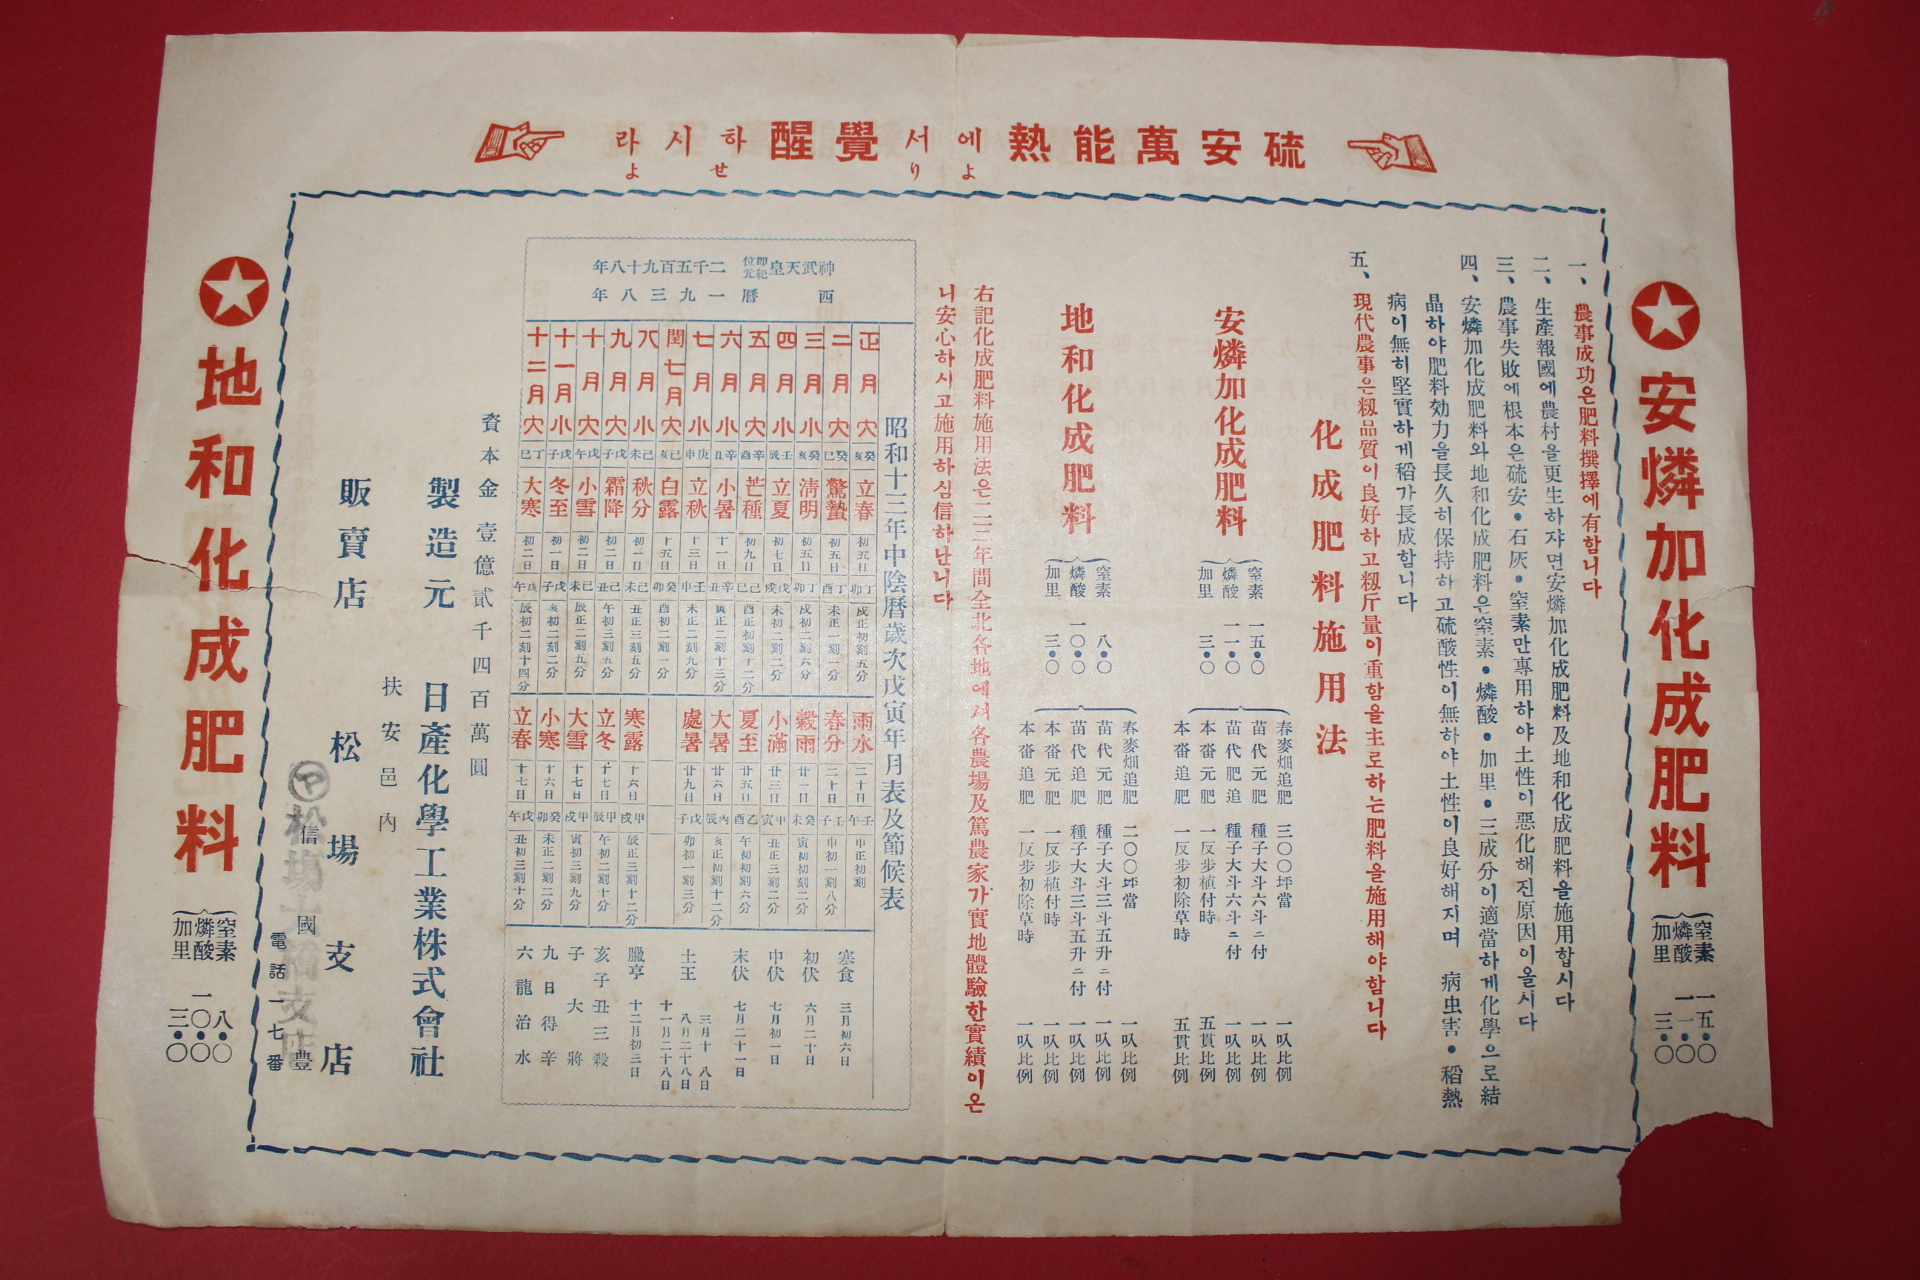 硫安萬能熱에서覺醒하시라
より せよ
安燐加化成肥料
窒素 一五・〇
燐酸 一一・〇
加里 三・〇
一、農事成功은肥料撰擇에有함니다
二、生產報國에農村을更生하쟈면安燐加化成肥料及地和化成肥料을施用합시다
三、農事失敗에根本은硫安・石灰・窒素만專用하야土性이惡化해진原因이올시다
四、安燐加化成肥料와地和化成肥料은窒素・燐酸・加里・三成分이適當하게化學으로結
晶하야肥料効力을長久히保持하고硫酸性이無하야土性이良好해지며 病虫害・稻熱
病이無히堅實하게稻가長成함니다
五、現代農事은籾品質이良好하고籾斤量이重함을主로하는肥料을施用해야함니다
化成肥料施用法
安燐加化成肥料
窒素 一五・〇
燐酸 一一・〇
加里 三・〇
春麥畑追肥 三〇〇坪當 一叺比例
苗代元肥 種子大斗六斗ニ付 一叺比例
苗代肥追 種子大斗六斗ニ付 一叺比例
本畓元肥 一反步植付時 五貫比例
本畓追肥 一反步初除草時 五貫比例
地和化成肥料
窒素 八・〇
燐酸 一〇・〇
加里 三・〇
春麥畑追肥 二〇〇坪當 一叺比例
苗代元肥 種子大斗三斗五升ニ付 一叺比例
苗代追肥 種子大斗三斗五升ニ付 一叺比例
本畓元肥 一反步植付時 一叺比例
本畓追肥 一反步初除草時 一叺比例
右記化成肥料施用法은二三年間全北各地에셔各農場及篤農家가實地體驗한實績이온
니安心하시고施用하심信하난니다
神武天皇即位紀元二千五百九十八年
西曆一九三八年
昭和十三年中陰曆歲次戊寅年月表及節候表
正月大 癸亥 立春 初五日 丁卯 戌正初刻五分 雨水 二十日 壬午 申正初刻
二月大 癸巳 驚蟄 初五日 丁酉 未正一刻一分 春分 二十日 壬子 申初一刻八分
三月小 癸亥 淸明 初五日 丁卯 戌初二刻六分 穀雨 廿一日 癸未 寅初初刻二分
四月小 壬辰 立夏 初七日 戊戌 未初二刻二分 小滿 廿三日 甲寅 丑正三刻二分
五月大 辛酉 芒種 初九日 己巳 酉正初刻十二分 夏至 廿五日 乙酉 午初初刻六分
六月小 辛丑 小暑 十一日 辛丑 寅正二刻十三分 大暑 廿六日 丙辰 亥正初刻十二分
七月小 庚申 立秋 十三日 壬申 未正二刻九分 處暑 廿九日 戊子 卯初一刻三分
閏七月大 己亥 白露 十五日 癸卯 酉初二刻一分
八月小 己未 秋分 初一日 己未 丑正三刻五分 寒露 十六日 甲戌 辰正三刻十二分
九月大 戊子 霜降 初二日 己丑 午初三刻五分 立冬 十七日 甲辰 午初二刻十分
十月大 戊午 小雪 初二日 己未 辰正二刻五分 大雪 十七日 甲戌 寅初三刻九分
十一月小 戊子 冬至 初一日 戊子 亥初二刻二分 小寒 十六日 癸卯 未正二刻二分
十二月大 丁巳 大寒 初二日 戊午 辰初二刻十四分 立春 十七日 戊午 丑初三刻十分
寒食 三月初六日
初伏 六月二十日
中伏 七月初一日
末伏 七月二十一日
土王 三月十八日
八月二十八日
十一月二十八日
臘亨 十二月初三日
亥子丑三殺
子大將
九日得辛
六龍治水
資本金壹億貳千四百萬圓
製造元 日產化學工業株式會社
扶安邑內
販賣店 松場支店
信國豊
電話一七番
地和化成肥料
窒素 八・〇
燐酸 一〇・〇
加里 三・〇